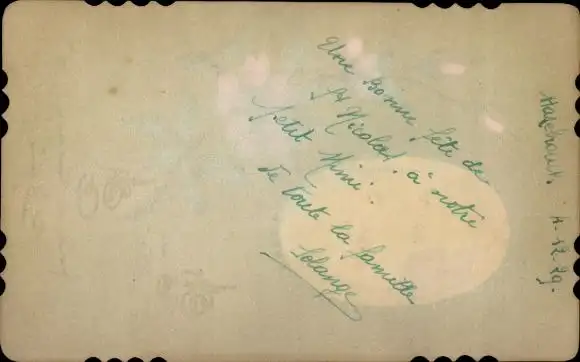 Une Bonne fête de
St Nicolas à notre
petit Mimi.
de toute la famille
Solange
4-12-29.